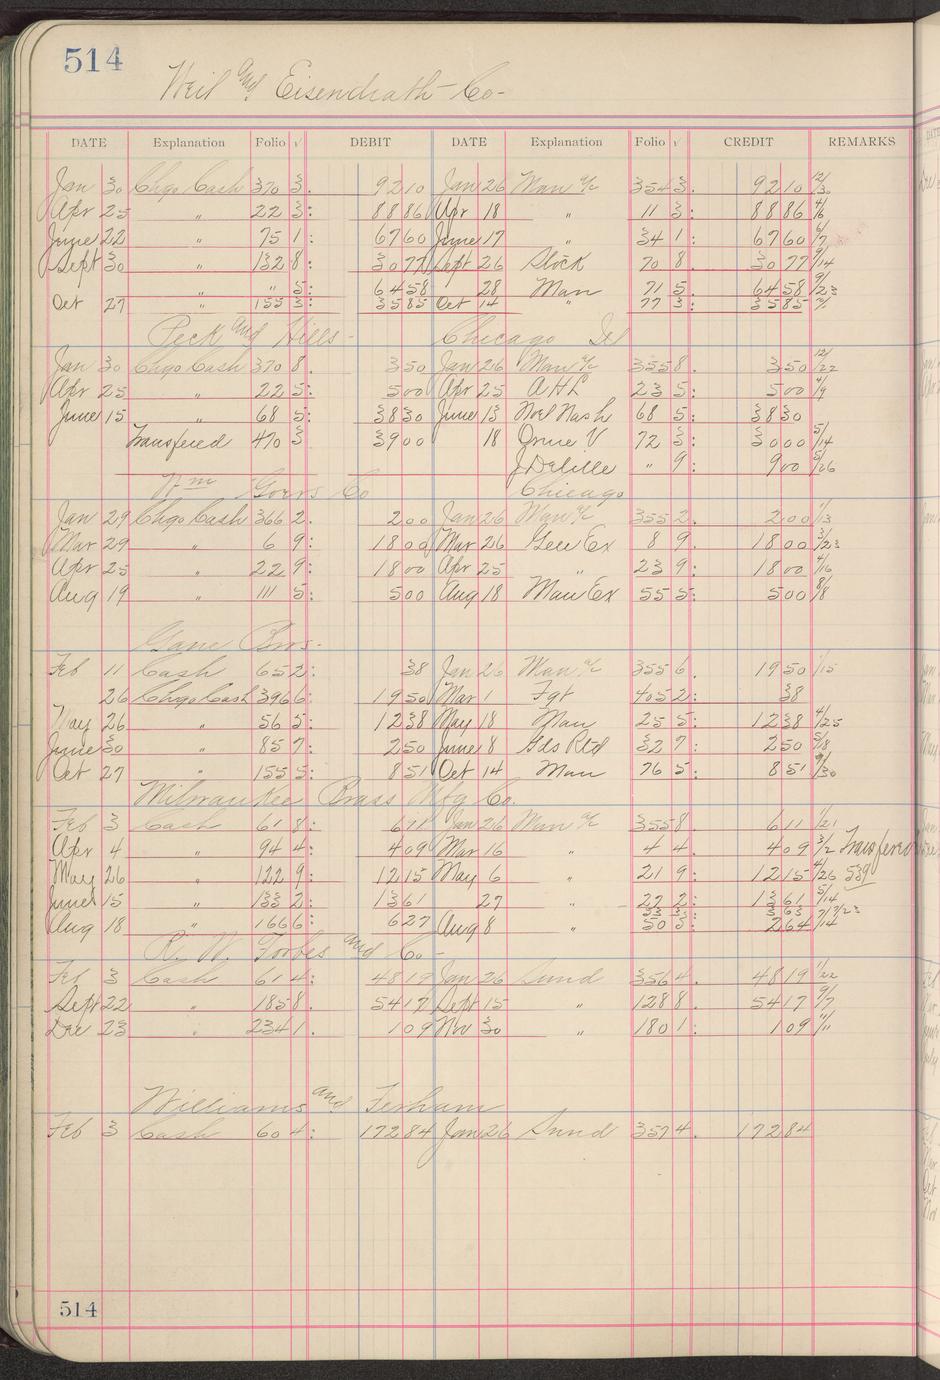 514
Weil and Eisendrath Co-
DATE Explanation Folio √ DEBIT DATE Explanation Folio √ CREDIT REMARKS
Jan 30 Chgo Cash 370 3. 92 10 Jan 26 Man a/c 354 3. 92 10 12/30
Apr 25 " 22 3: 88 86 Apr 18 " 11 3: 88 86 4/6
June 22 " 75 1: 67 60 June 17 " 34 1: 67 60 6/7
Sept 30 " 132 8: 30 77 Sept 26 Stock 70 8. 30 77 9/14
" " 5: 64 58 28 Man 71 5. 64 58 9/23
Oct 27 " 155 3: 35 85 Oct 14 " 77 3: 35 85
Peck and Hills- Chicago Ill
Jan 30 Chgo Cash 370 8. 3 50 Jan 26 Man a/c 355 8. 3 50 12/22
Apr 25 " 22 5: 5 00 Apr 25 A H L 23 5: 5 00 4/9
June 15 " 68 5: 38 30 June 13 Noel Nash 68 5: 38 30
Transfered 470 3 39 00 18 Orme V 72 3: 30 00 5/14
J Delille " 9: 9 00 5/26
Wm Goers Co Chicago
Jan 29 Chgo Cash 366 2. 2 00 Jan 26 Man a/c 355 2. 2 00 1/13
Mar 29 " 6 9: 18 00 Mar 26 Gen Ex 8 9. 18 00 3/23
Apr 25 " 22 9: 18 00 Apr 25 " 23 9: 18 00 4/16
Aug 19 " 111 5: 5 00 Aug 18 Man Ex 55 5: 5 00 8/8
Gane Bros-
Feb 11 Cash 65 2: 38 Jan 26 Man a/c 355 6. 19 50 1/15
26 Chgo Cash 396 6: 19 50 Mar 1 Fgt 405 2: 38
May 26 " 56 5: 12 38 May 18 Man 25 5: 12 38 4/25
June 30 " 85 7: 2 50 June 8 Gds Rtd 32 7: 2 50 5/8
Oct 27 " 155 5: 8 51 Oct 14 Man 76 5: 8 51 9/30
Milwaukee Brass Mfg Co.
Feb 3 Cash 61 8: 6 11 Jan 26 Man a/c 355 8. 6 11 1/21
Apr 4 " 94 4: 4 09 Mar 16 " 4 4. 4 09 3/2 Transfered
May 26 " 122 9: 12 15 May 6 " 21 9: 12 15 4/26 539
June 15 " 133 2: 13 61 27 " 27 2: 13 61 5/14
33 3: 3 63
Aug 18 " 166 6: 6 27 Aug 8 " 50 3: 2 64 7/14
R. W. Forbes and Co-
Feb 3 Cash 61 4: 48 19 Jan 26 Sund 356 4. 48 19 1/22
Sept 22 " 185 8. 54 17 Sept 15 " 128 8: 54 17 9/7
Dec 23 " 234 1. 1 09 Nov 30 " 180 1: 1 09 11/11
Williams and Ferham
Feb 3 Cash 60 4: 172 84 Jan 26 Sund 357 4. 172 84
514